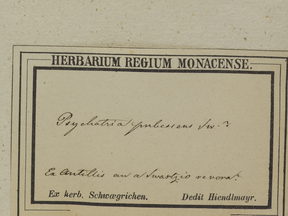 HERBARIUM REGIUM MONACENSE.
Psychotria pubescens Sw.?
Ex Antillis an a Swartzio
Ex herb. Schwægrichen. Dedit Hiendlmayr.